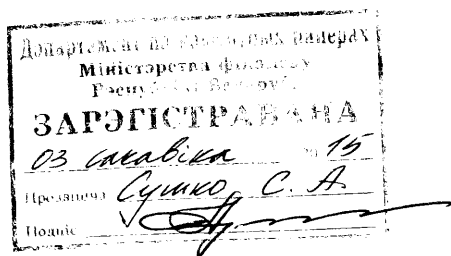 Дэпартамент па каштоўных паперах
Міністэрства фінансаў
Рэспублікі Беларусь
ЗАРЭГІСТРАВАНА
03 сакавіка 20 15
Прозвішча Сушко С. А.
Подпіс